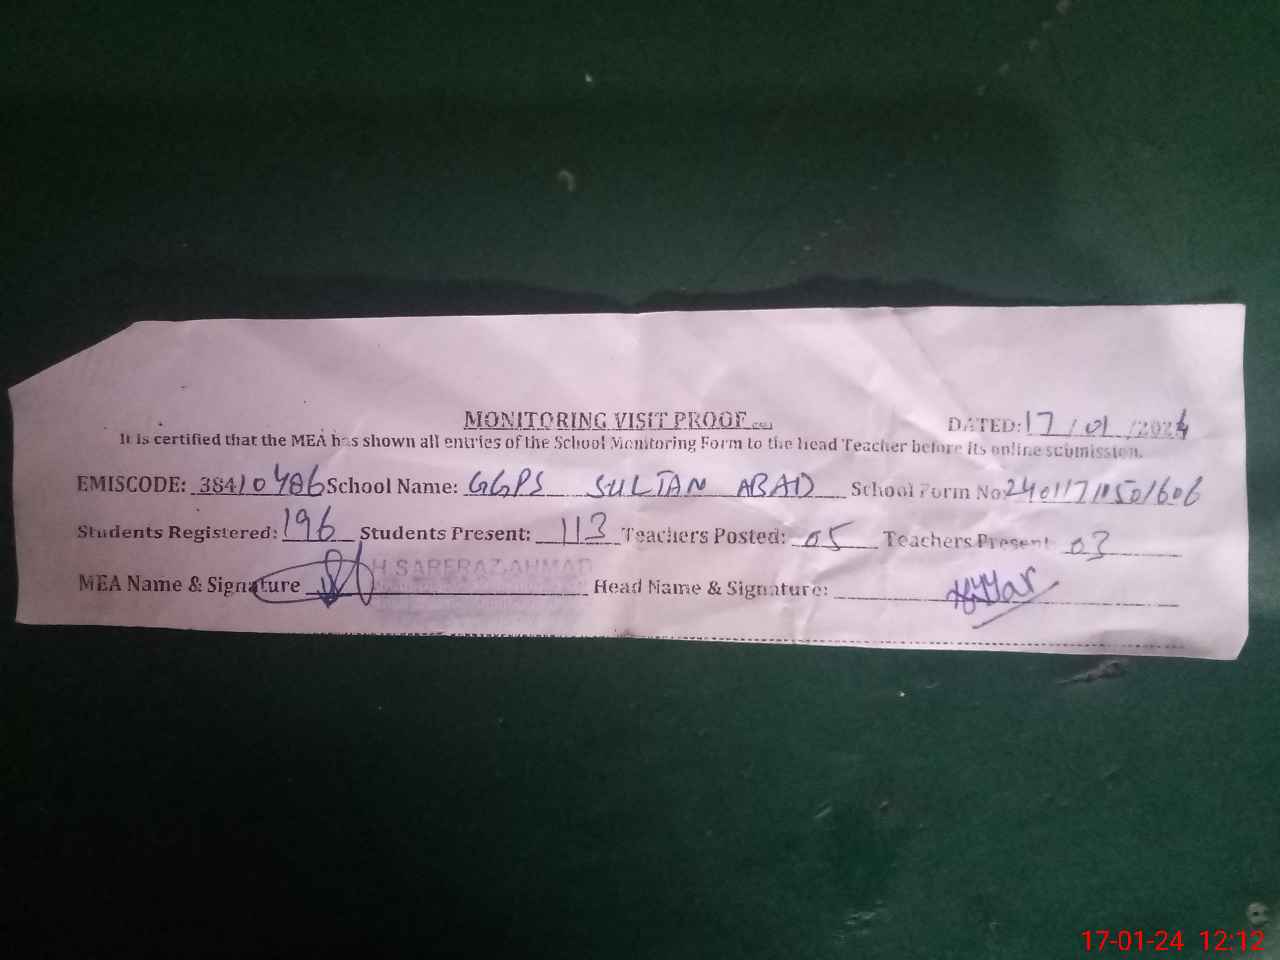 MONITORING VISIT PROOF
DATED: 17/01/2024
It is certified that the MEA has shown all entries of the School Monitoring Form to the Head Teacher before its online submission.
EMISCODE: 38410486 School Name: GGPS SULTAN ABAD School Form No: 2401171501606
Students Registered: 196 Students Present: 113 Teachers Posted: 05 Teachers Present 03
MEA Name & Signature H SARFRAZ AHMAD Head Name & Signature:
17-01-24 12:12